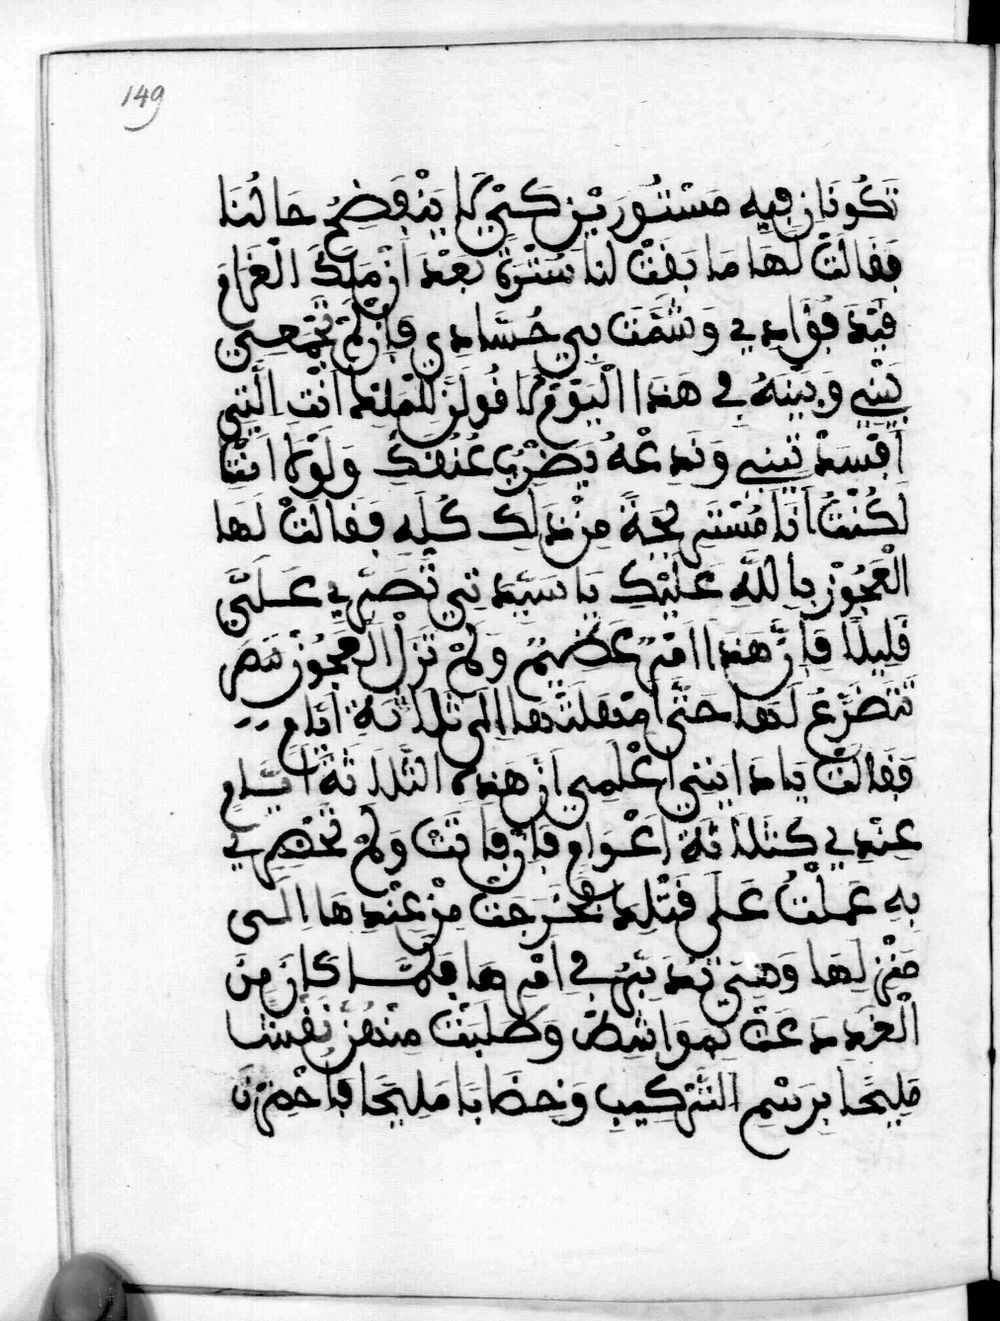 149
تَكُونَانِ فِيهِ مَسْتُورَيْنِ كَيْ لَا يَنْفَضِحُ حَالُنَا
فَقَالَتْ لَهَا مَا بَقَتْ لَنَا سُتْرَةٌ بَعْدَ أَنْ مَلَكَ الْغَرَامُ
قَيْدَ فُؤَادِي وَشَمَّتَ بِي حُسَّادِي فَإِنْ لَمْ تَجْمَعِي
بَيْنِي وَبَيْنَهُ فِي هَذَا الْيَوْمِ لَأَقُولَنَّ لِلْمَلِكِ أَنْتِ الَّتِي
أَفْسَدْتِينِي وَنَدَعْهُ يَضْرِبُ عُنُقَكِ وَلَوْلَا أَنْتِ
لَكُنْتُ أَنَا مُسْتَرِيحَةً مِنْ ذَلِكَ كُلِّهِ فَقَالَتْ لَهَا
الْعَجُوزُ بِاللَّهِ عَلَيْكِ يَا سَيِّدَتِي تَصَبَّرِي عَلَيَّ
قَلِيلًا فَإِنَّ هَذَا أَمْرٌ عَظِيمٌ وَلَمْ تَزَلْ الْعَجُوزُ
تَتَضَرَّعُ لَهَا حَتَّى أَمْهَلَتْهَا إِلَى ثَلَاثَةِ أَيَّامٍ
فَقَالَتْ يَا دَايَتِي اعْلَمِي أَنَّ هَذِهِ الثَّلَاثَةَ أَيَّامٍ
عِنْدِي كَثَلَاثَةِ أَعْوَامٍ فَإِنْ فَاتَتْ وَلَمْ تَحْضُرِي
بِهِ عَمِلْتُ عَلَى قَتْلِكِ فَخَرَجَتْ مِنْ عِنْدِهَا إِلَى
مَنْزِلِهَا وَهِيَ تُدَبِّرُ فِي أَمْرِهَا فَلَمَّا كَانَ مِنَ
الْغَدِ دَعَتْ بِمَوَاشِطَ وَطَلَبَتْ مِنْهُنَّ نَقْشًا
مَلِيحًا بِرَسْمِ التَّرْكِيبِ وَخِضَابًا مَلِيحًا فَأَحْضَرْنَ